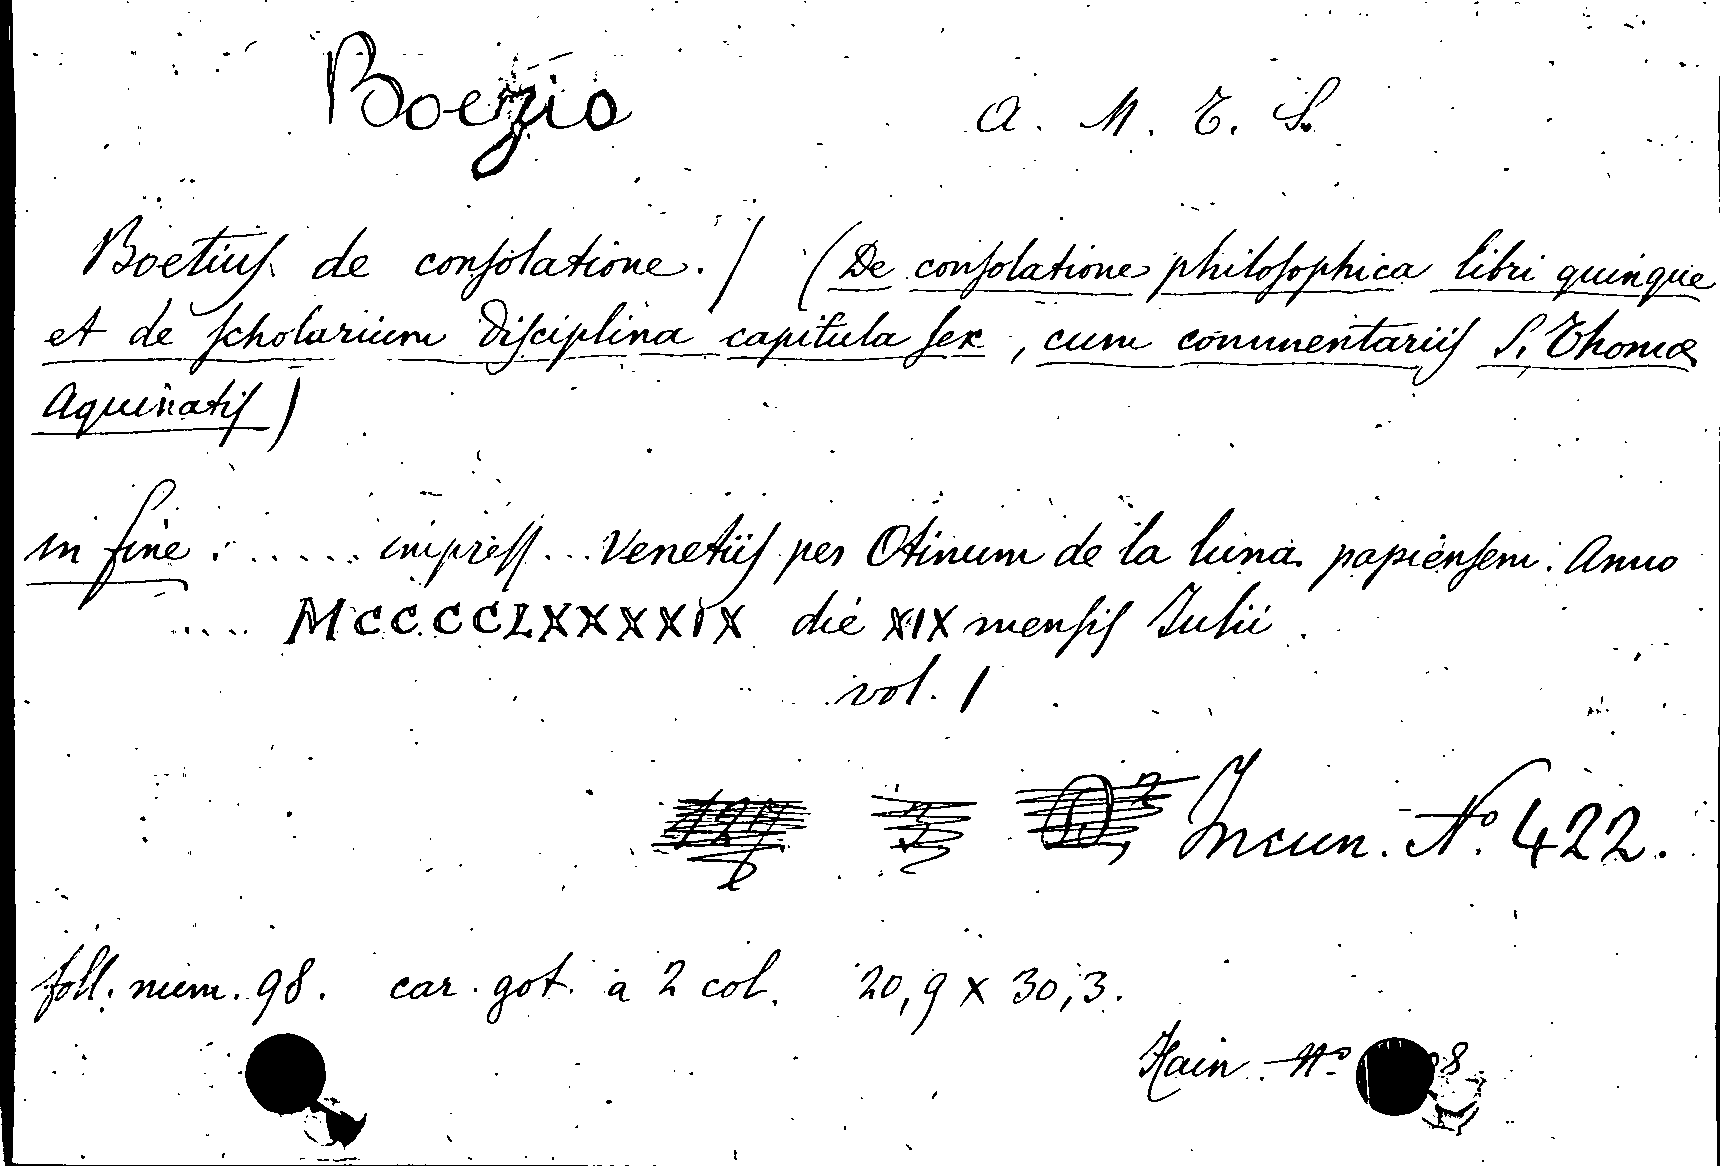 Boezio A. M. T. S.
Boetius de consolatione. / (De consolatione philosophica libri quinque
et de scholarium disciplina capitula sex, cum commentariis S. Thomæ
Aquinatis)
in fine: ..... impress... Venetiis per Otinum de la luna papiensem. Anno
.... MCCCCLXXXXIX die XIX mensis Julii.
vol. 1
Incun. No. 422.
foll. num. 98. car. got. a 2 col. 20,9 x 30,3.
Hain No